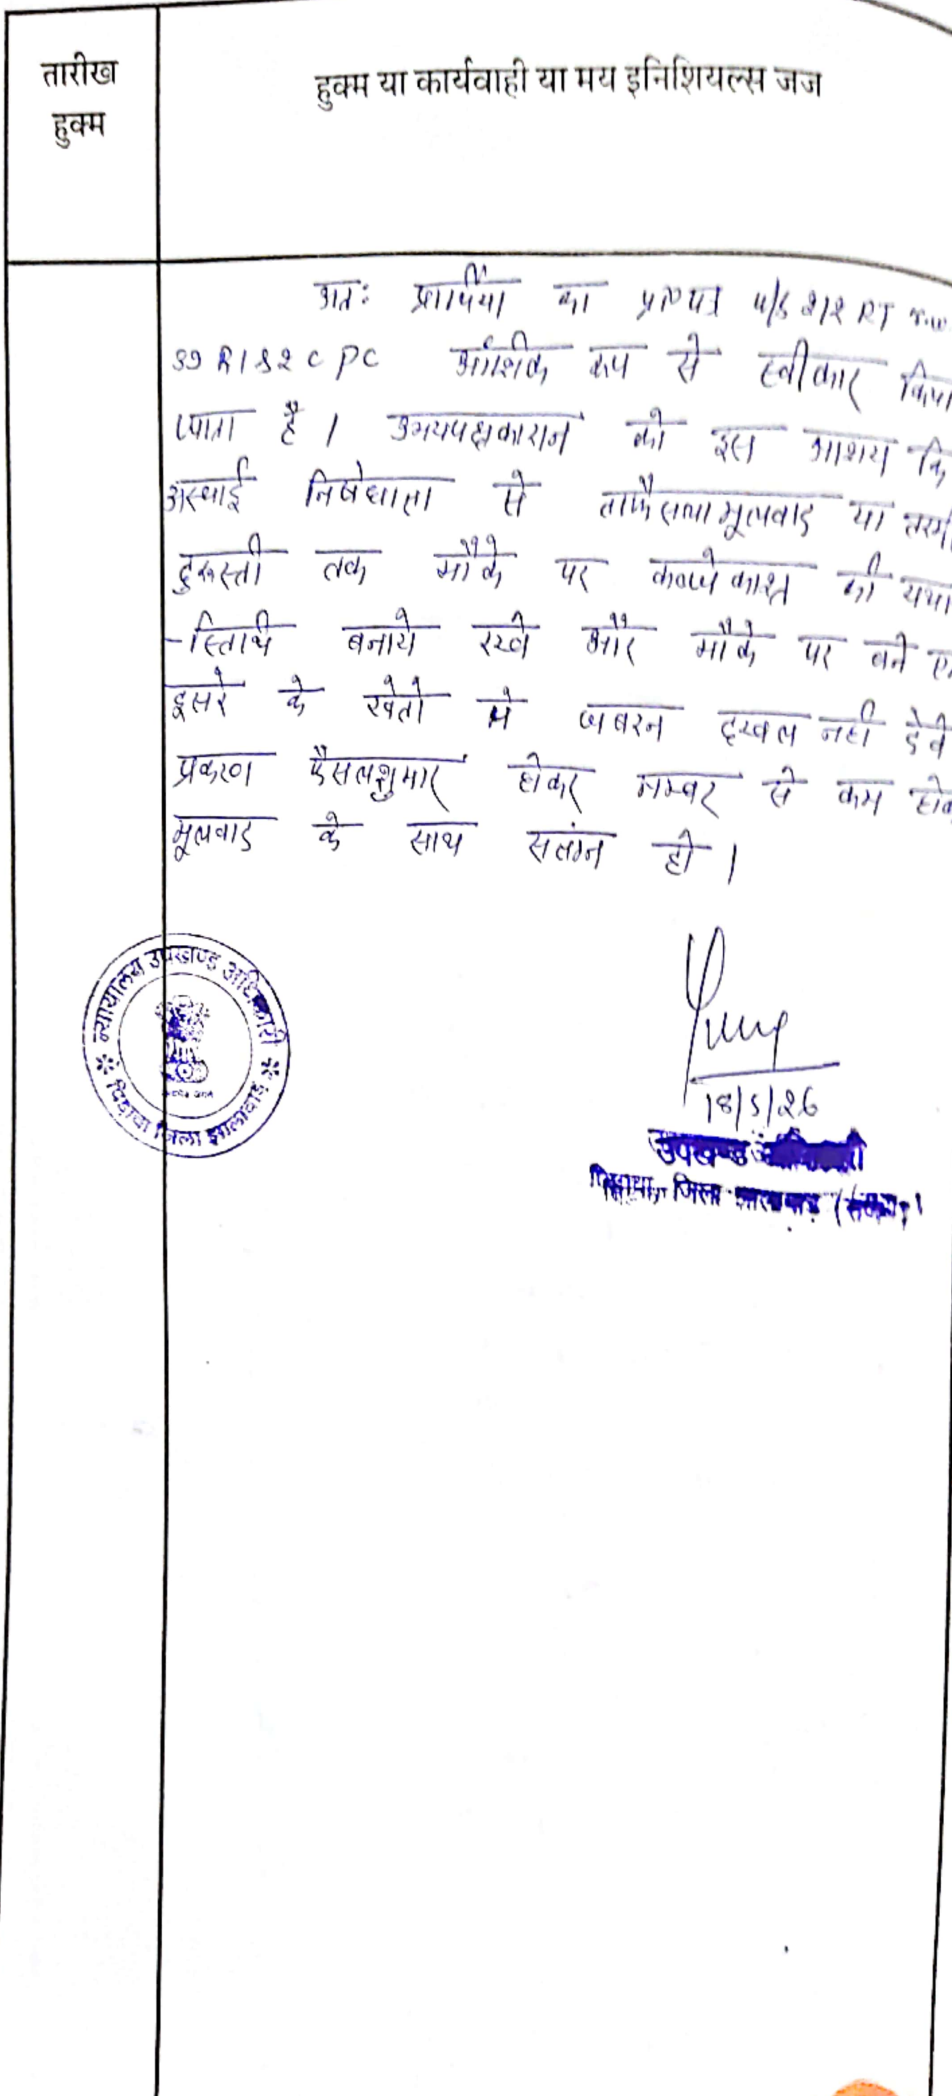 तारीख
हुक्म
हुक्म या कार्यवाही या मय इनिशियल्स जज
अतः प्रार्थिया का प्रा०पत्र u/s 212 RT
39 R 1 & 2 CPC आंशिक रूप से स्वीकार किया
जाता है । उभयपक्षकारान को इस आशय कि
अस्थाई निषेधाज्ञा से ताफैसला मूलवाद या तरमी
दुरूस्ती तक मौके पर कब्जे काश्त की यथा
-स्तिथि बनाये रखे और मौके पर बने ए
दूसरे के खेतो मे जबरन दखल नही देवे
प्रकरण फैसलशुमार होकर नम्बर से कम होक
मूलवाद के साथ सलंग्न हो ।
न्यायालय उपखण्ड अधिकारी
पिडावा जिला झालावाड़
18/5/26
उपखण्ड अधिकारी
पिडावा, जिला झालावाड़